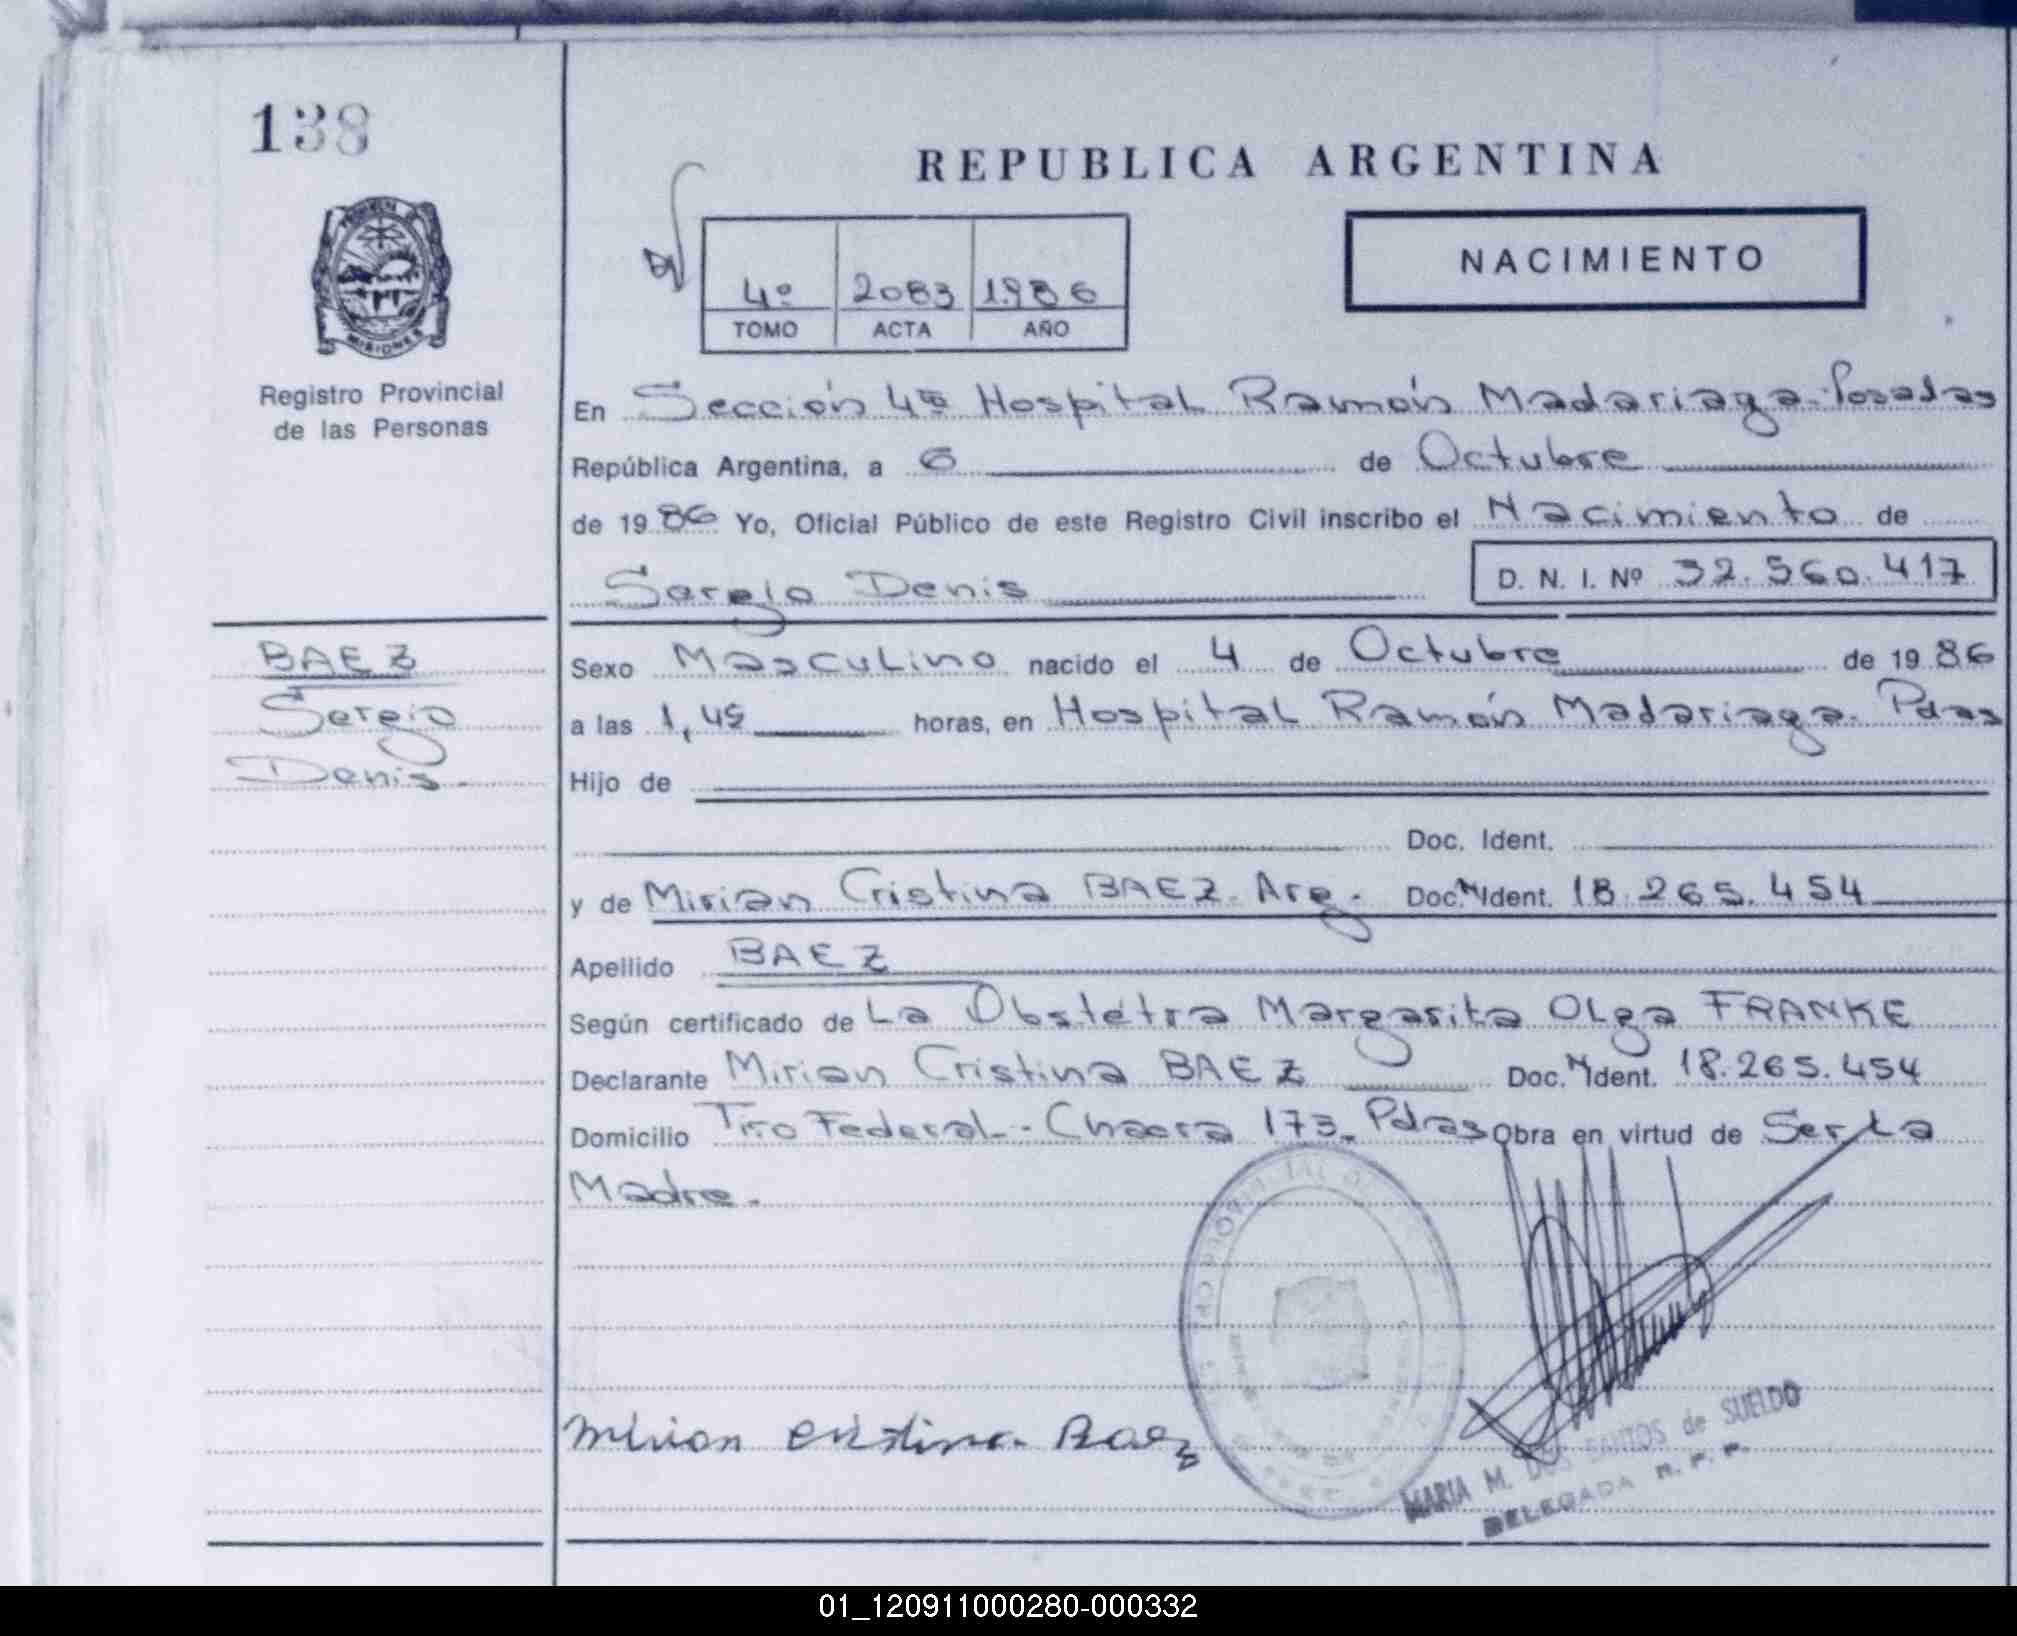 138
REPUBLICA ARGENTINA
NACIMIENTO
4º 2083 1986
TOMO ACTA AÑO
MISIONES
Registro Provincial
de las Personas
En Sección 4ta Hospital Ramón Madariaga. Posadas
República Argentina, a 6 de Octubre
de 1986 Yo, Oficial Público de este Registro Civil inscribo el Nacimiento de
Sergio Denis D. N. I. Nº 32.560.417
BAEZ
Sergio
Denis.
Sexo Masculino nacido el 4 de Octubre de 1986
a las 1,45 horas, en Hospital Ramón Madariaga. Pdas
Hijo de
Doc. Ident.
y de Mirian Cristina BAEZ. Arg. Doc. N Ident. 18.265.454
Apellido BAEZ
Según certificado de La Obstétra Margarita Olga FRANKE
Declarante Mirian Cristina BAEZ Doc. N Ident. 18.265.454
Domicilio Tiro Federal - Chacra 173. Pdas Obra en virtud de Ser La
Madre.
Mirian Cristina Baez
MARIA M. DOS SANTOS de SUELDO
DELEGADA R. P. P.
01_120911000280-000332